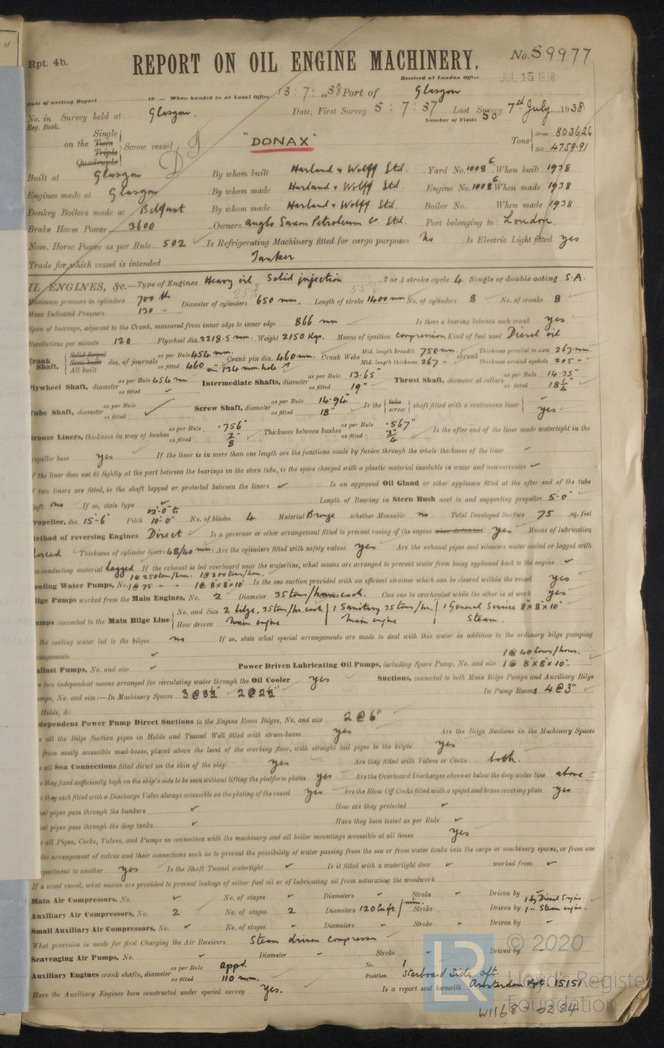 Rpt. 4b.
REPORT ON OIL ENGINE MACHINERY.
No. 59977
Received at London Office
JUL 15 1938
Date of writing Report 19 — When handed in at Local Office 13 : 7 : 1938 Port of Glasgow
No. in Survey held at Glasgow. Date, First Survey 5 : 7 : 37 Last Survey 7th July 1938
Reg. Book. Number of Visits 50
Single
on the Twin Screw vessel "DONAX" Tons Gross 8036.26
Triple
Quadruple Net 4759.91
Built at Glasgow By whom built Harland & Wolff Ltd. Yard No. 1008G When built 1938
Engines made at Glasgow By whom made Harland & Wolff Ltd. Engine No. 1008G When made 1938
Donkey Boilers made at Belfast By whom made Harland & Wolff Ltd. Boiler No. When made 1938
Brake Horse Power 3600 Owners Anglo Saxon Petroleum Co Ltd. Port belonging to London.
Nom. Horse Power as per Rule 502 Is Refrigerating Machinery fitted for cargo purposes No Is Electric Light fitted yes
Trade for which vessel is intended Tanker
OIL ENGINES, &c. Type of Engines Heavy oil Solid injection 2 or 4 stroke cycle 4 Single or double acting S.A.
Maximum pressure in cylinders 700 lb Diameter of cylinders 650 mm. Length of stroke 1400 mm No. of cylinders 8 No. of cranks 8
Mean Indicated Pressure 120
Span of bearings, adjacent to the Crank, measured from inner edge to inner edge 866 mm Is there a bearing between each crank yes
Revolutions per minute 120 Flywheel dia. 2218.5 mm. Weight 2150 Kgs. Means of ignition compression Kind of fuel used Diesel oil
Crank Shaft, Solid forged Semi built All built dia. of journals as per Rule 454 mm. as fitted 460 Crank pin dia. 460 mm. Crank Webs Mid. length breadth 750 mm Mid. length thickness 267 shrunk Thickness parallel to axis 267 mm Thickness around eyehole 205
Flywheel Shaft, diameter as per Rule 454 mm as fitted Intermediate Shafts, diameter as per Rule 13.65" as fitted 19" Thrust Shaft, diameter at collars as per Rule 14.75" as fitted 18½"
Tube Shaft, diameter as per Rule as fitted Screw Shaft, diameter as per Rule 14.94" as fitted 18" Is the tube screw shaft fitted with a continuous liner yes
Bronze Liners, thickness in way of bushes as per Rule .756" as fitted 7/8" Thickness between bushes as per Rule .567" as fitted 3/4" Is the after end of the liner made watertight in the
propeller boss yes If the liner is in more than one length are the junctions made by fusion through the whole thickness of the liner
If the liner does not fit tightly at the part between the bearings in the stern tube, is the space charged with a plastic material insoluble in water and non-corrosive
If two liners are fitted, is the shaft lapped or protected between the liners Is an approved Oil Gland or other appliance fitted at the after end of the tube
shaft no If so, state type Length of Bearing in Stern Bush next to and supporting propeller 5'-0"
Propeller, dia. 15'-6" Pitch No. of blades 4 Material Bronze whether Moveable no Total Developed Surface 75 sq. feet
Method of reversing Engines Direct Is a governor or other arrangement fitted to prevent racing of the engine when declutched yes Means of lubrication
forced Thickness of cylinder liners 48/40 mm Are the cylinders fitted with safety valves yes Are the exhaust pipes and silencers water cooled or lagged with
non-conducting material lagged If the exhaust is led overboard near the waterline, what means are arranged to prevent water from being syphoned back to the engine
Cooling Water Pumps, No. Is the sea suction provided with an efficient strainer which can be cleared within the vessel yes
Bilge Pumps worked from the Main Engines, No. 2 Diameter 35 tons/hour each. Can one be overhauled while the other is at work yes
Pumps connected to the Main Bilge Line No. and Size 2 bilge, 35 tons/hr. each 1 Sanitary 35 tons/hr. 1 General Service 8"x8"x10"
How driven main engine main engine Steam.
Is the cooling water led to the bilges no If so, state what special arrangements are made to deal with this water in addition to the ordinary bilge pumping
arrangements
Ballast Pumps, No. and size Power Driven Lubricating Oil Pumps, including Spare Pump, No. and size 1 @ 40 tons/hour. 1 @ 8x8x10"
Are two independent means arranged for circulating water through the Oil Cooler yes Suctions, connected to both Main Bilge Pumps and Auxiliary Bilge
Pumps, No. and size:—In Machinery Spaces 3 @ 3½" 2 @ 2½" In Pump Room 4 @ 3"
In Holds, &c.
Independent Power Pump Direct Suctions to the Engine Room Bilges, No. and size 2 @ 6"
Are all the Bilge Suction pipes in Holds and Tunnel Well fitted with strum-boxes yes Are the Bilge Suctions in the Machinery Spaces
led from easily accessible mud-boxes, placed above the level of the working floor, with straight tail pipes to the bilges yes
Are all Sea Connections fitted direct on the skin of the ship yes Are they fitted with Valves or Cocks both.
Are they fixed sufficiently high on the ship's side to be seen without lifting the platform plates yes Are the Overboard Discharges above or below the deep water line above
Are they each fitted with a Discharge Valve always accessible on the plating of the vessel yes Are the Blow Off Cocks fitted with a spigot and brass covering plate yes
What pipes pass through the bunkers How are they protected
What pipes pass through the deep tanks Have they been tested as per Rule
Are all Pipes, Cocks, Valves, and Pumps in connection with the machinery and all boiler mountings accessible at all times yes
Is the arrangement of valves and their connections such as to prevent the possibility of water passing from the sea or from water tanks into the cargo or machinery spaces, or from one
compartment to another yes Is the Shaft Tunnel watertight Is it fitted with a watertight door worked from
If a wood vessel, what means are provided to prevent leakage of either fuel oil or of lubricating oil from saturating the woodwork
Main Air Compressors, No. No. of stages Diameters Stroke Driven by 1 by Diesel Engine.
Auxiliary Air Compressors, No. 2 No. of stages 2 Diameters 120 Cu ft/min. Stroke Driven by 1 " Steam engine.
Small Auxiliary Air Compressors, No. No. of stages Diameters Stroke Driven by
What provision is made for first Charging the Air Receivers Steam driven compressor
Scavenging Air Pumps, No. Diameter Stroke Driven by
Auxiliary Engines crank shafts, diameter as per Rule appd. as fitted 110 mm. No. 1 Position Starboard Side aft.
Have the Auxiliary Engines been constructed under special survey yes. Is a report sent herewith Amsterdam Rpt. 15151
LR © 2020
Lloyd's Register
Foundation
W1168-0234